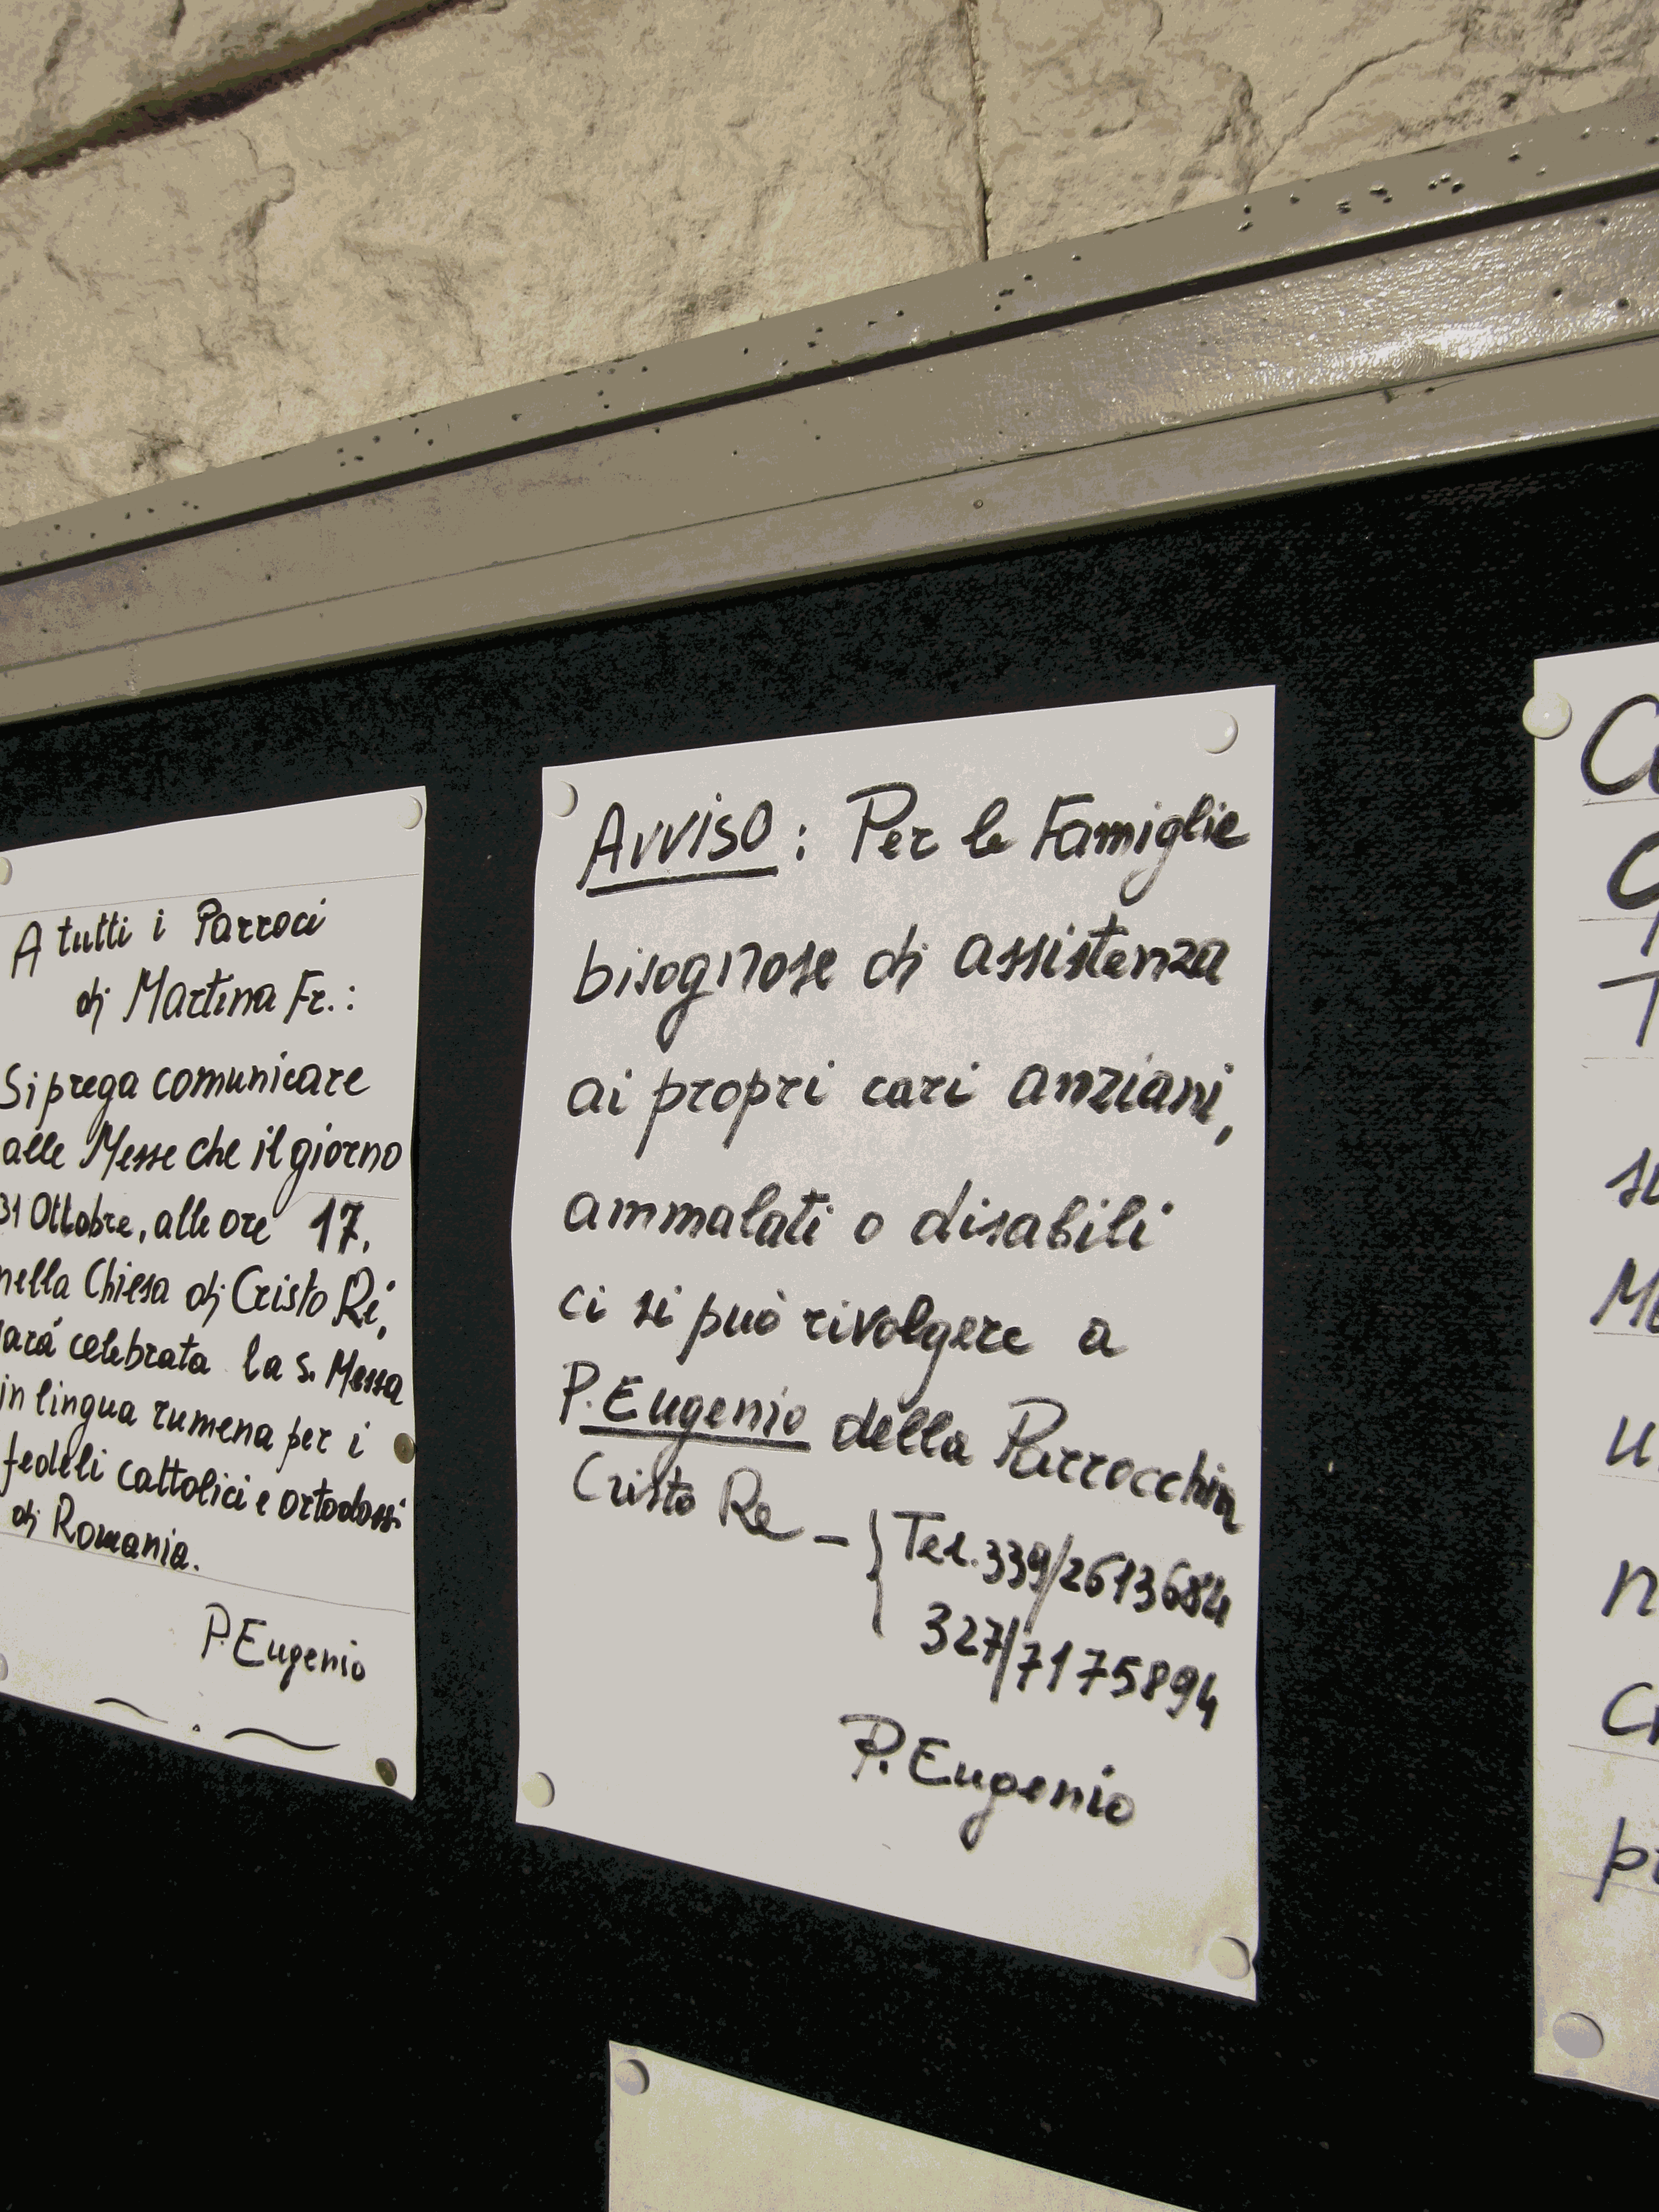 A tutti i Parroci
di Martina Fr.:
Si prega comunicare
alle Messe che il giorno
31 Ottobre, alle ore 17,
nella Chiesa di Cristo Ré,
sará celebrata la S. Messa
in lingua rumena per i
fedeli cattolici e ortodossi
di Romania.
P. Eugenio
Avviso : Per le Famiglie
bisognose di assistenza
ai propri cari anziani,
ammalati o disabili
ci si può rivolgere a
P. Eugenio della Parrocchia
Cristo Re - { Tel. 339/2613684
327/7175894
P. Eugenio